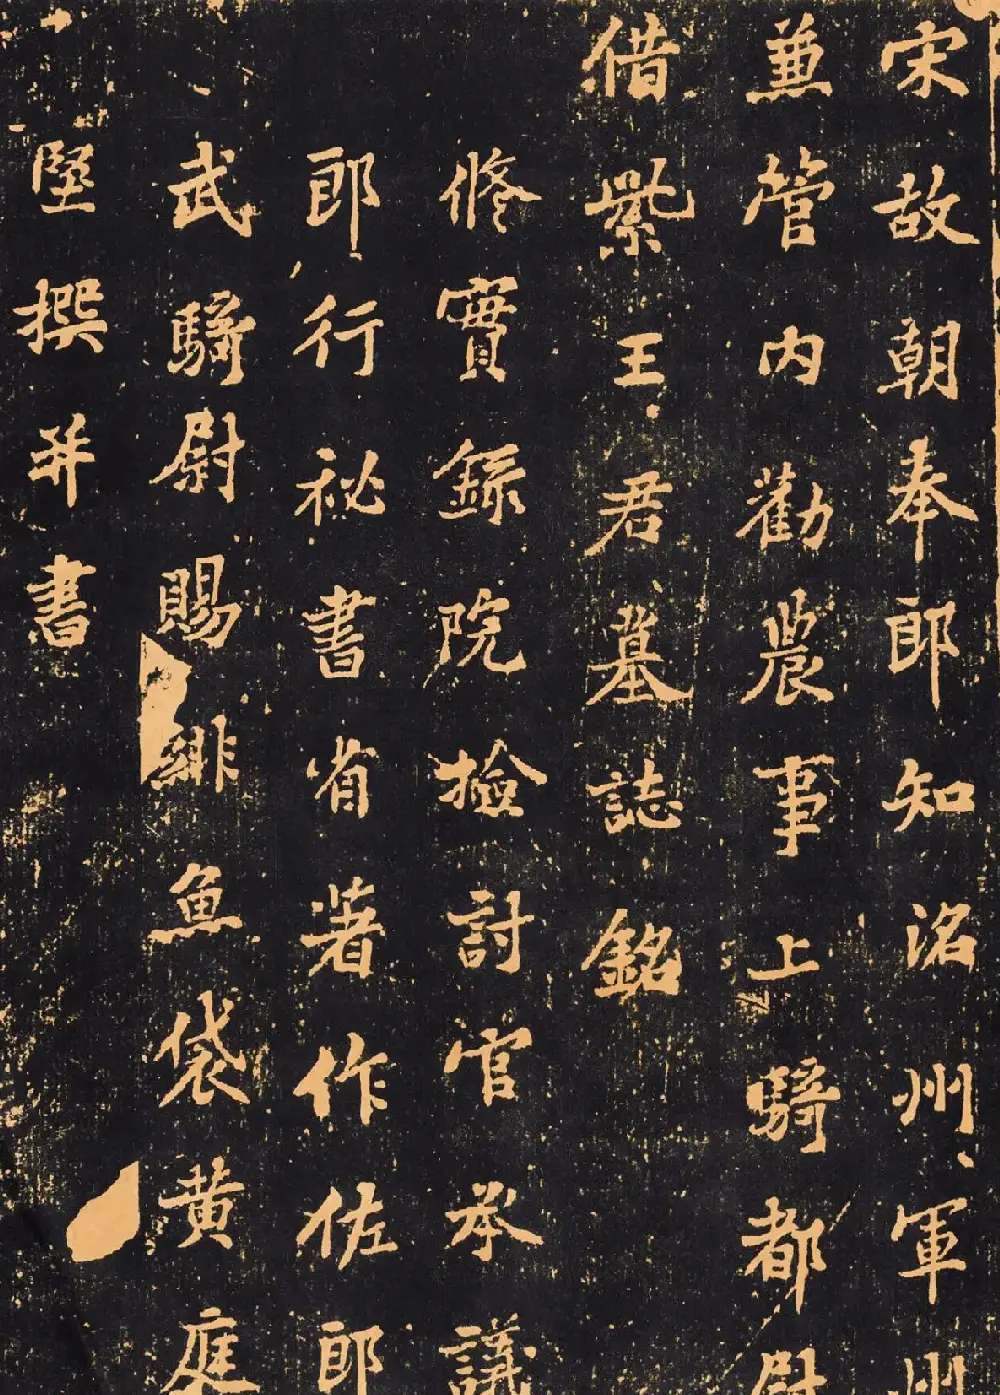 宋故朝奉郎知洺州軍州
兼管内勸農事上騎都尉
借紫王君墓誌銘
修實錄院檢討官承議
郎行祕書省著作佐郎
武騎尉賜緋魚袋黄庭
堅撰并書